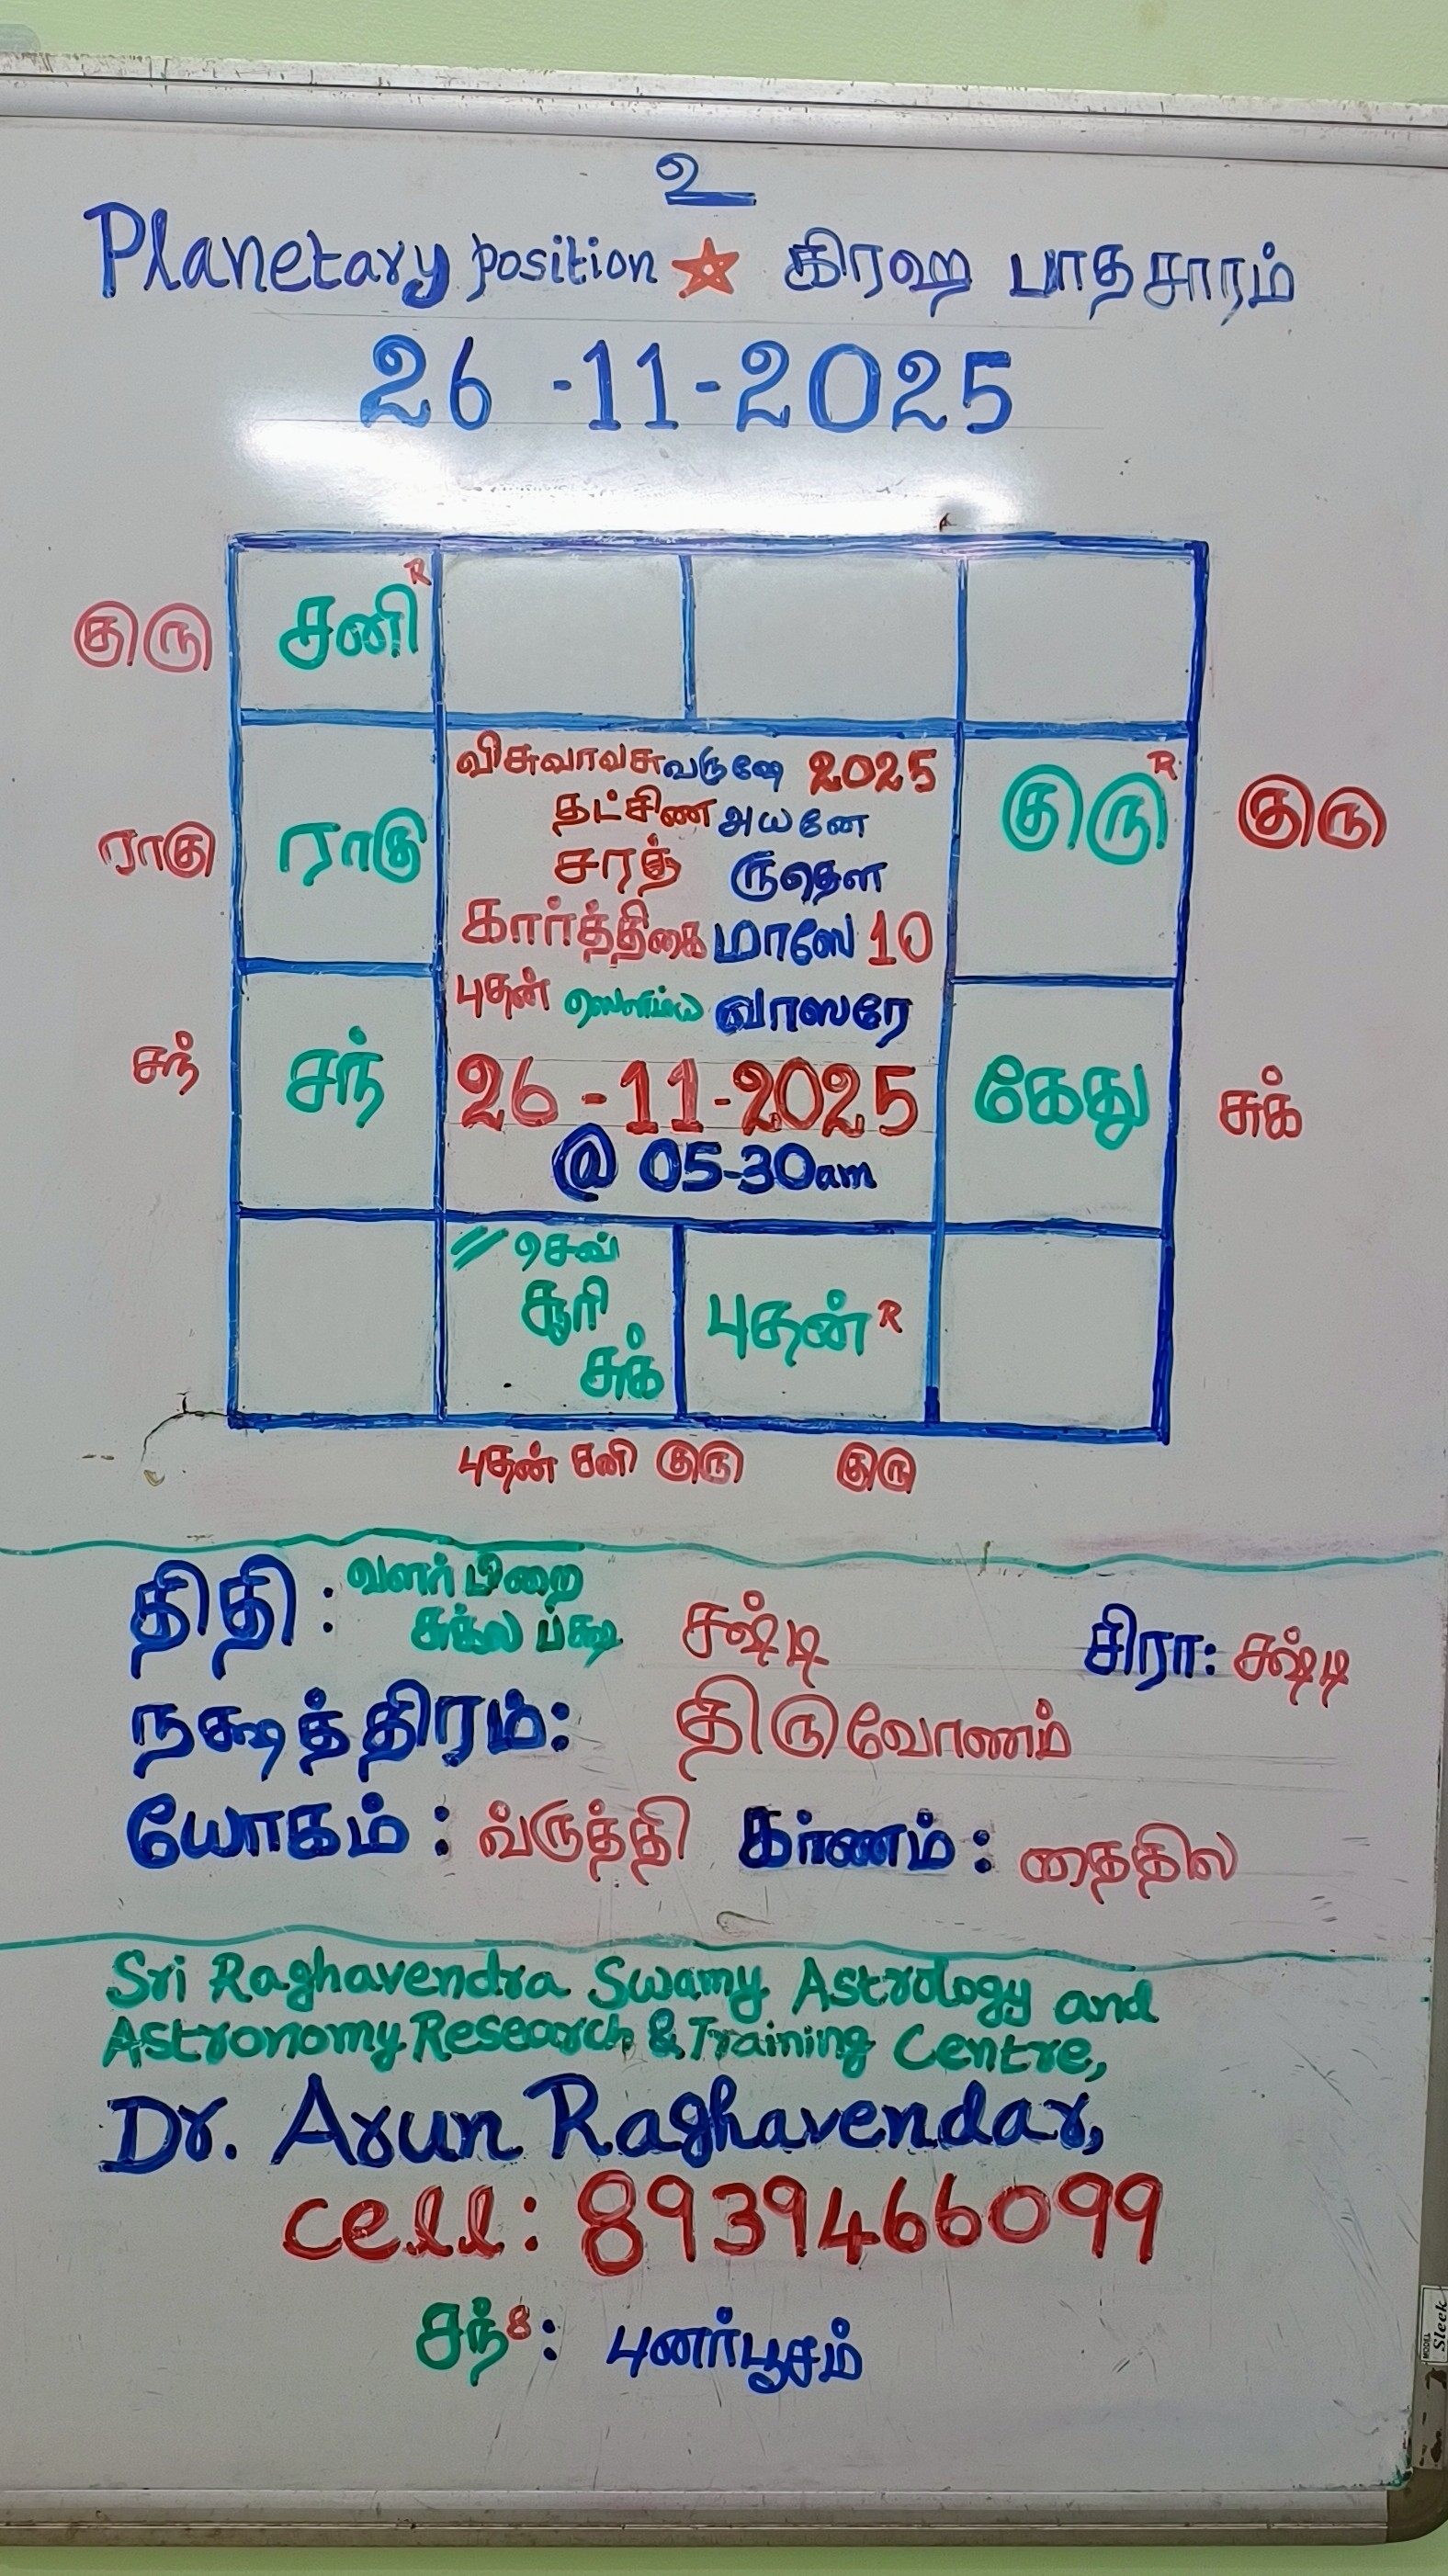 உ
Planetary position கிரஹ பாதசாரம்
26-11-2025
குரு சனி R
விசுவாவசு வருஷே 2025
தட்சிண அயனே
சரத் ருதௌ
கார்த்திகை மாஸே 10
புதன் ஸௌம்ய வாஸரே
26-11-2025
@ 05-30am
ராகு ராகு
குரு R குரு
சந் சந்
கேது சுக்
// செவ்
சூரி
சுக்
புதன் R
புதன் சனி குரு குரு
திதி : வளர் பிறை
சுக்ல பக்ஷ சஷ்டி சிரா: சஷ்டி
நக்ஷத்திரம்: திருவோணம்
யோகம் : வ்ருத்தி கர்ணம் : தைதில
Sri Raghavendra Swamy Astrology and
Astronomy Research & Training Centre,
Dr. Arun Raghavendar,
cell: 8939466099
சந்8: புனர்பூசம்
Sleek